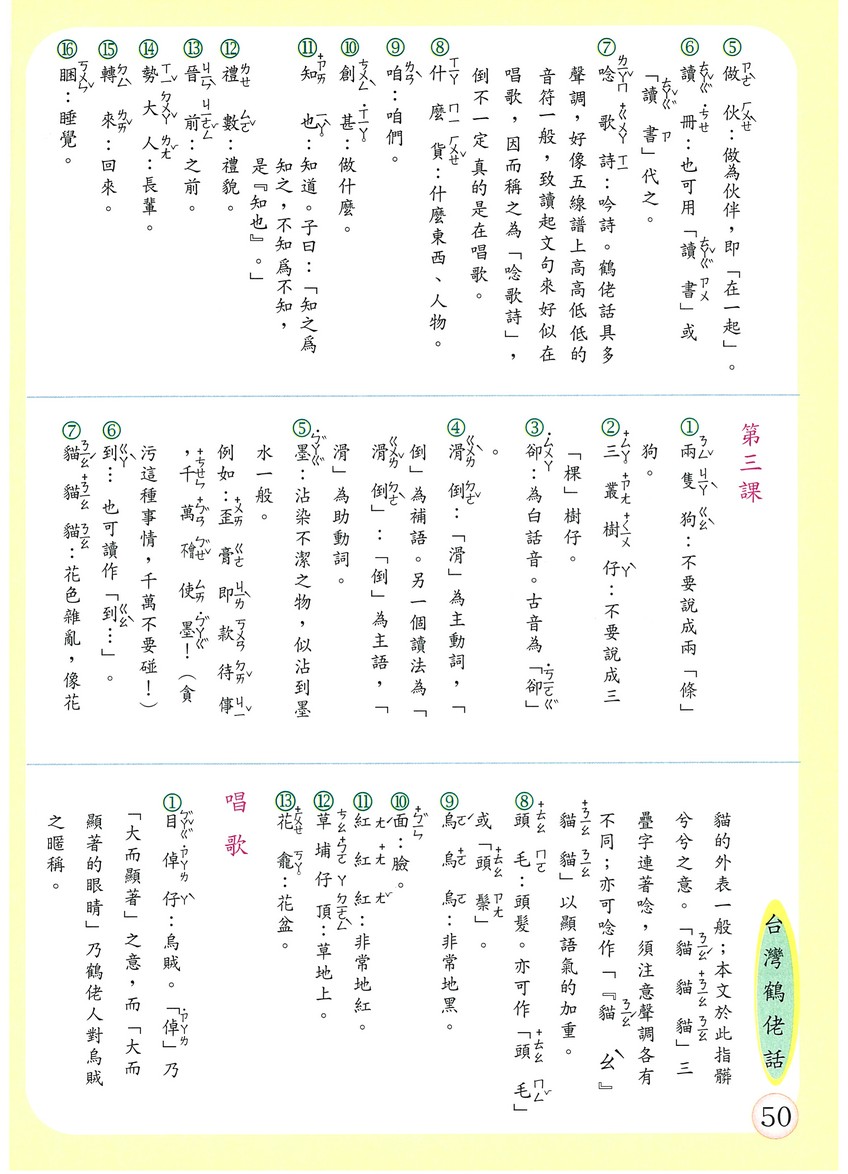 ⑤做伙：做為伙伴，即「在一起」。
⑥讀冊：也可用「讀書」或
「讀書」代之。
⑦唸歌詩：吟詩。鶴佬話具多
聲調，好像五線譜上高高低低的
音符一般，致讀起文句來好似在
唱歌，因而稱之為「唸歌詩」，
倒不一定真的是在唱歌。
⑧什麼貨：什麼東西、人物。
⑨咱：咱們。
⑩創甚：做什麼。
⑪知也：知道。子曰：「知之爲
知之，不知爲不知，
是『知也』。」
⑫禮數：禮貌。
⑬晉前：之前。
⑭勢大人：長輩。
⑮轉來：回來。
⑯睏：睡覺。
第三課
①兩隻狗：不要說成兩「條」
狗。
②三叢樹仔：不要說成三
「棵」樹仔。
③卻：為白話音。古音為「卻」
。
④滑倒：「滑」為主動詞，「
倒」為補語。另一個讀法為「
滑倒」：「倒」為主語，「
滑」為助動詞。
⑤墨：沾染不潔之物，似沾到墨
水一般。
例如：歪膏即款待傳
，千萬襘使墨！（貪
污這種事情，千萬不要碰！）
⑥到…也可讀作「到…」。
⑦貓貓貓：花色雜亂，像花
貓的外表一般；本文於此指髒
兮兮之意。「貓貓貓」三
疊字連著唸，須注意聲調各有
不同；亦可唸作「『貓ㄠˋ』
貓貓」以顯語氣的加重。
⑧頭毛：頭髮。亦可作「頭毛」
或「頭鬃」。
⑨烏烏烏：非常地黑。
⑩面：臉。
⑪紅紅紅：非常地紅。
⑫草埔仔頂：草地上。
⑬花龕：花盆。
唱歌
①目倬仔：烏賊。「倬」乃
「大而顯著」之意，而「大而
顯著的眼睛」乃鶴佬人對烏賊
之暱稱。
台灣鶴佬話
50